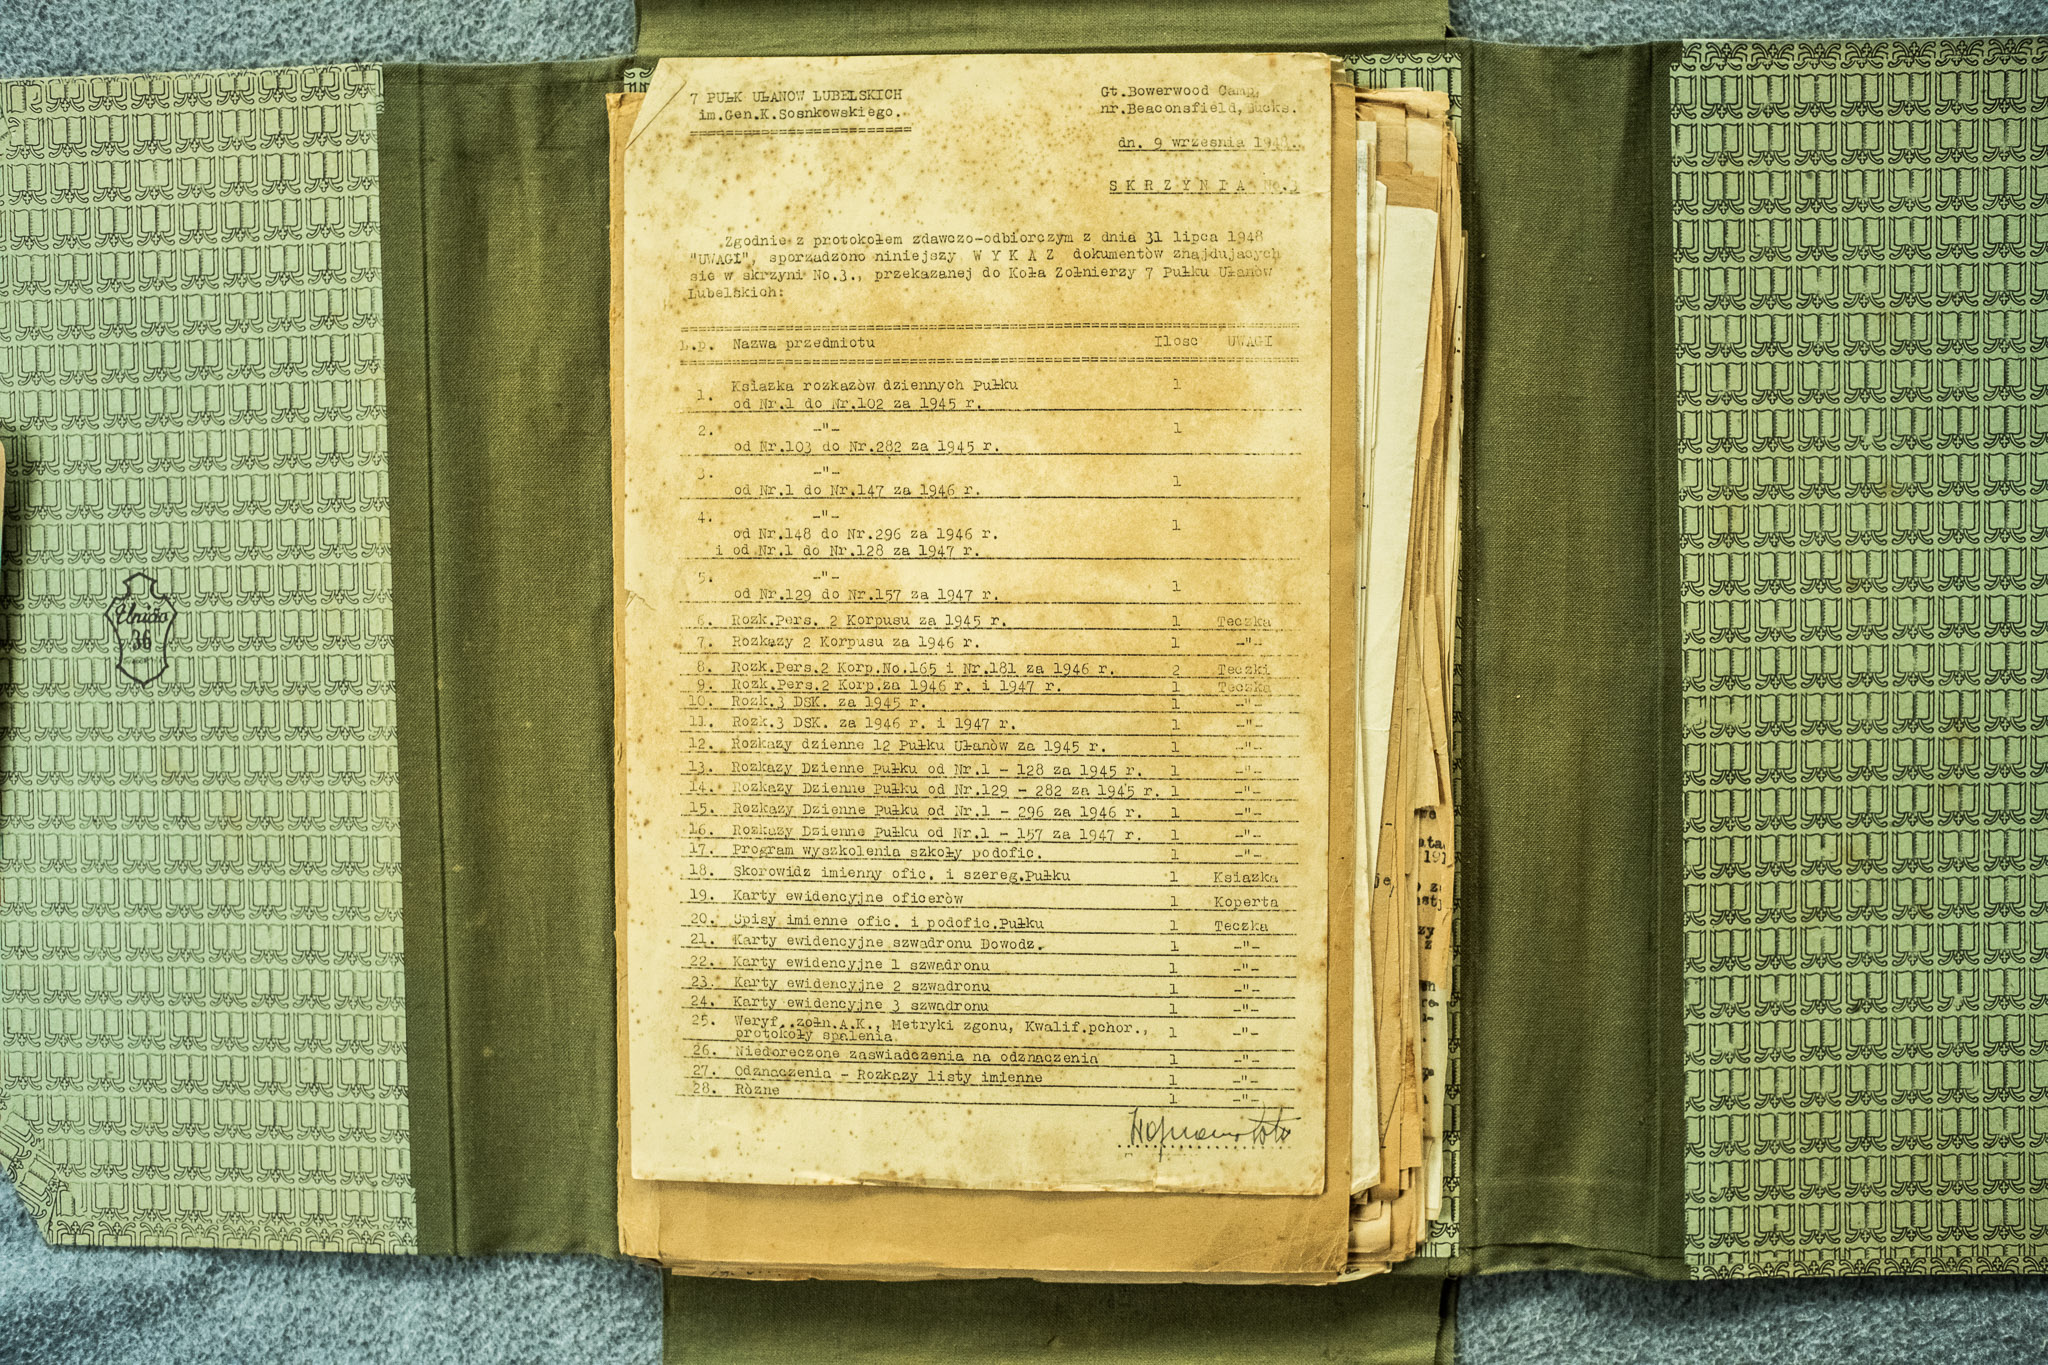 7 PUŁK UŁANOW LUBELSKICH
im.Gen.K.Sosnkowskiego.
Gt.Bowerwood Camp,
nr.Beaconsfield, Bucks.
dn. 9 września
S K R Z Y N I A No.3
Zgodnie z protokołem zdawczo-odbiorczym z dnia 31 lipca 1948
"UWAGI", sporządzono niniejszy W Y K A Z dokumentów znajdujących
się w skrzyni No.3., przekazanej do Koła Żołnierzy 7 Pułku Ułanów
Lubelskich:
L.p. Nazwa przedmiotu Ilosc UWAGI
1. Ksiazka rozkazòw dziennych Pułku 1
od Nr.1 do Nr.102 za 1945 r.
2. -"- 1
od Nr.103 do Nr.282 za 1945 r.
3. -"-
od Nr.1 do Nr.147 za 1946 r. 1
4. -"-
od Nr.148 do Nr.296 za 1946 r. 1
i od Nr.1 do Nr.128 za 1947 r.
5. -"-
od Nr.129 do Nr.157 za 1947 r. 1
6. Rozk.Pers. 2 Korpusu za 1945 r. 1 Teczka
7. Rozkazy 2 Korpusu za 1946 r. 1 -"-
8. Rozk.Pers.2 Korp.No.165 i Nr.181 za 1946 r. 2 Teczki
9. Rozk.Pers.2 Korp.za 1946 r. i 1947 r. 1 Teczka
10. Rozk.3 DSK. za 1945 r. 1 -"-
11. Rozk.3 DSK. za 1946 r. i 1947 r. 1 -"-
12. Rozkazy dzienne 12 Pułku Ułanòw za 1945 r. 1 -"-
13. Rozkazy Dzienne Pułku od Nr.1 - 128 za 1945 r. 1 -"-
14. Rozkazy Dzienne Pułku od Nr.129 - 282 za 1945 r. 1 -"-
15. Rozkazy Dzienne Pułku od Nr.1 - 296 za 1946 r. 1 -"-
16. Rozkazy Dzienne Pułku od Nr.1 - 157 za 1947 r. 1 -"-
17. Program wyszkolenia szkoły podofic. 1 -"-
18. Skorowidz imienny ofic. i szereg.Pułku 1 Ksiazka
19. Karty ewidencyjne oficeròw 1 Koperta
20. Spisy imienne ofic. i podofic.Pułku 1 Teczka
21. Karty ewidencyjne szwadronu Dowodz. 1 -"-
22. Karty ewidencyjne 1 szwadronu 1 -"-
23. Karty ewidencyjne 2 szwadronu 1 -"-
24. Karty ewidencyjne 3 szwadronu 1 -"-
25. Weryf. żołn.A.K., Metryki zgonu, Kwalif.pchor., 1 -"-
protokoły spalenia
26. Niedoreczone zaswiadczenia na odznaczenia 1 -"-
27. Odznaczenia - Rozkazy listy imienne 1 -"-
28. Ròzne 1 -"-
36